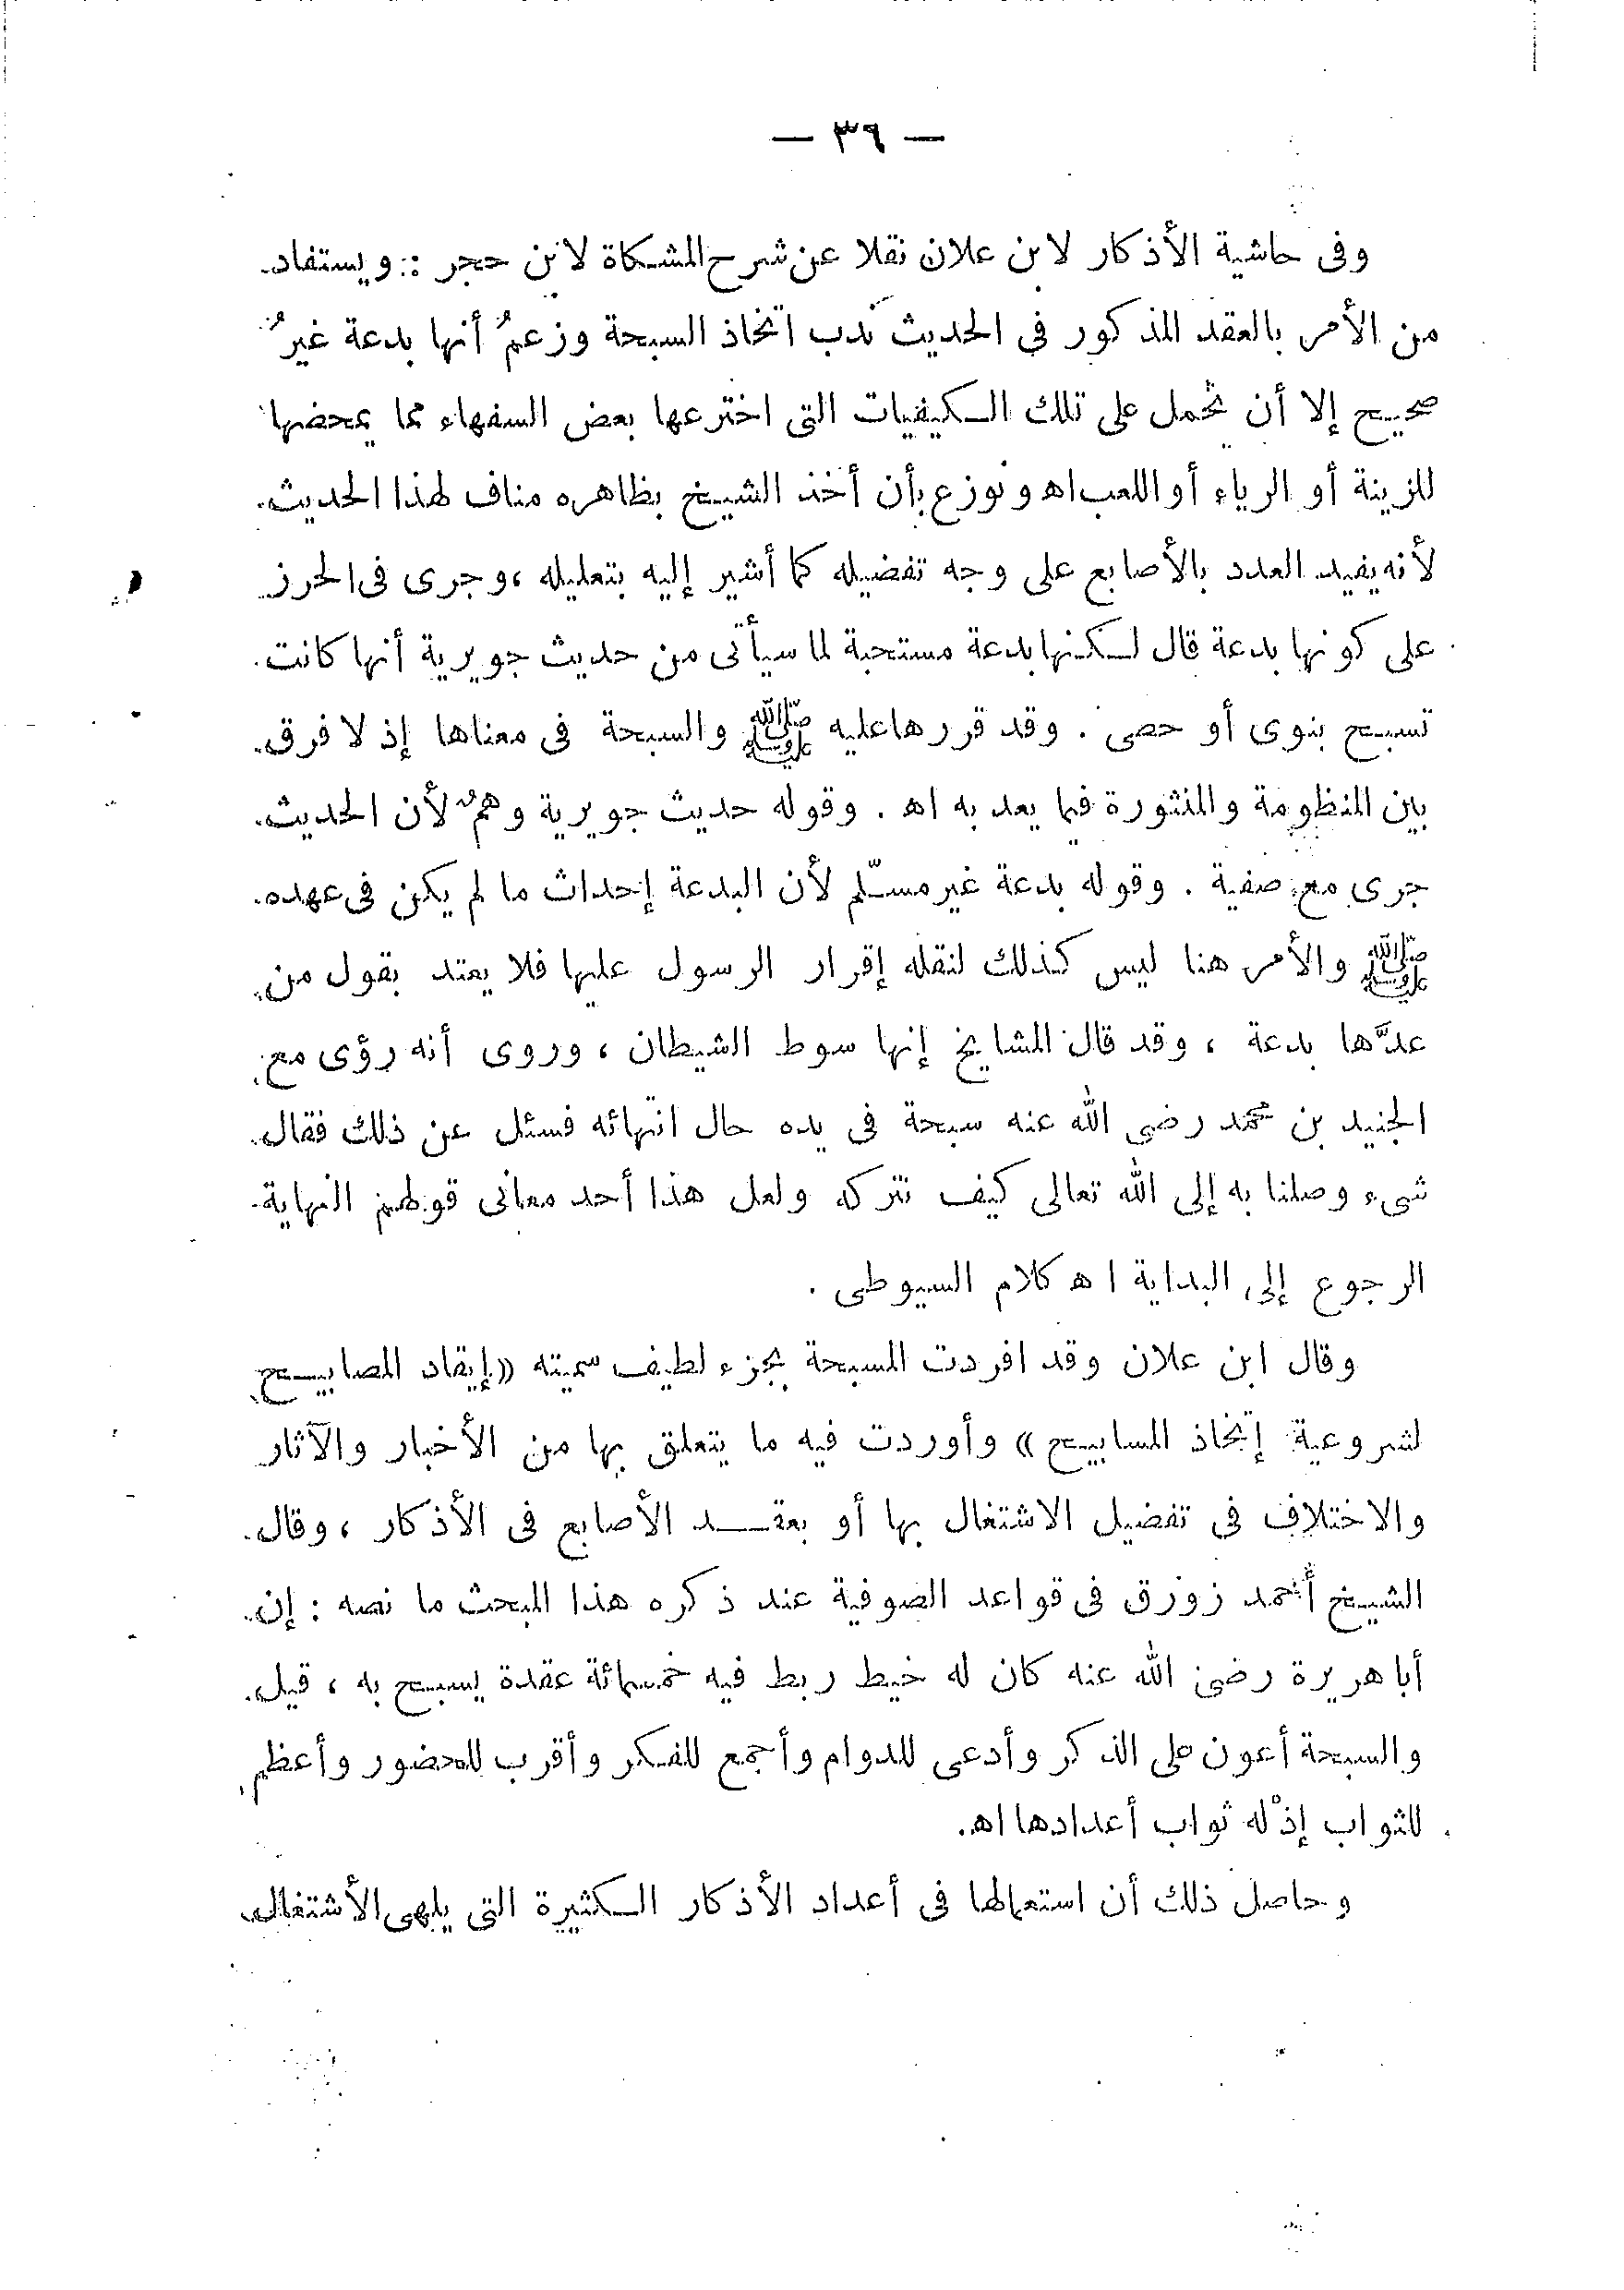 — ٣٦ —
وفى حاشية الأذكار لابن علان نقلا عن شرح المشكاة لابن حجر : ويستفاد
من الأمر بالعقد المذكور فى الحديث ندب اتخاذ السبحة وزعمُ أنها بدعة غيرُ
صحيح إلا أن تحمل على تلك الكيفيات التى اخترعها بعض السفهاء مما يمحضها
للزينة أو الرياء أو اللعب اه ونوزع بأن أخذ الشيخ بظاهره مناف لهذا الحديث
لأنه يفيد العدد بالأصابع على وجه تفضيله كما أشير إليه بتعليله ، وجرى فى الحرز
على كونها بدعة قال لكنها بدعة مستحبة لما سيأتى من حديث جويرية أنها كانت
تسبح بنوى أو حصى . وقد قررها عليه ﷺ والسبحة فى معناها إذ لا فرق
بين المنظومة والمنثورة فيما يعد به اه . وقوله حديث جويرية وهمٌ لأن الحديث
جرى مع صفية . وقوله بدعة غير مسلّم لأن البدعة إحداث ما لم يكن فى عهده
ﷺ والأمر هنا ليس كذلك لنقله إقرار الرسول عليها فلا يعتد بقول من
عدَّها بدعة ، وقد قال المشايخ إنها سوط الشيطان ، وروى أنه رؤى مع
الجنيد بن محمد رضى الله عنه سبحة فى يده حال انتهائه فسئل عن ذلك فقال
شىء وصلنا به إلى الله تعالى كيف نتركه ولعل هذا أحد معانى قولهم النهاية
الرجوع إلى البداية اه كلام السيوطى .
وقال ابن علان وقد افردت السبحة بجزء لطيف سميته «إيقاد المصابيح
لشروعية إتخاذ المسابيح» وأوردت فيه ما يتعلق بها من الأخبار والآثار
والاختلاف فى تفضيل الاشتغال بها أو بعقد الأصابع فى الأذكار ، وقال
الشيخ أحمد زورق فى قواعد الصوفية عند ذكره هذا المبحث ما نصه : إن
أبا هريرة رضى الله عنه كان له خيط ربط فيه خمسمائة عقدة يسبح به ، قيل
والسبحة أعون على الذكر وأدعى للدوام وأجمع للفكر وأقرب للحضور وأعظم
للثواب إذْ له ثواب أعدادها اه.
وحاصل ذلك أن استعمالها فى أعداد الأذكار الكثيرة التى يلهى الأشتغال